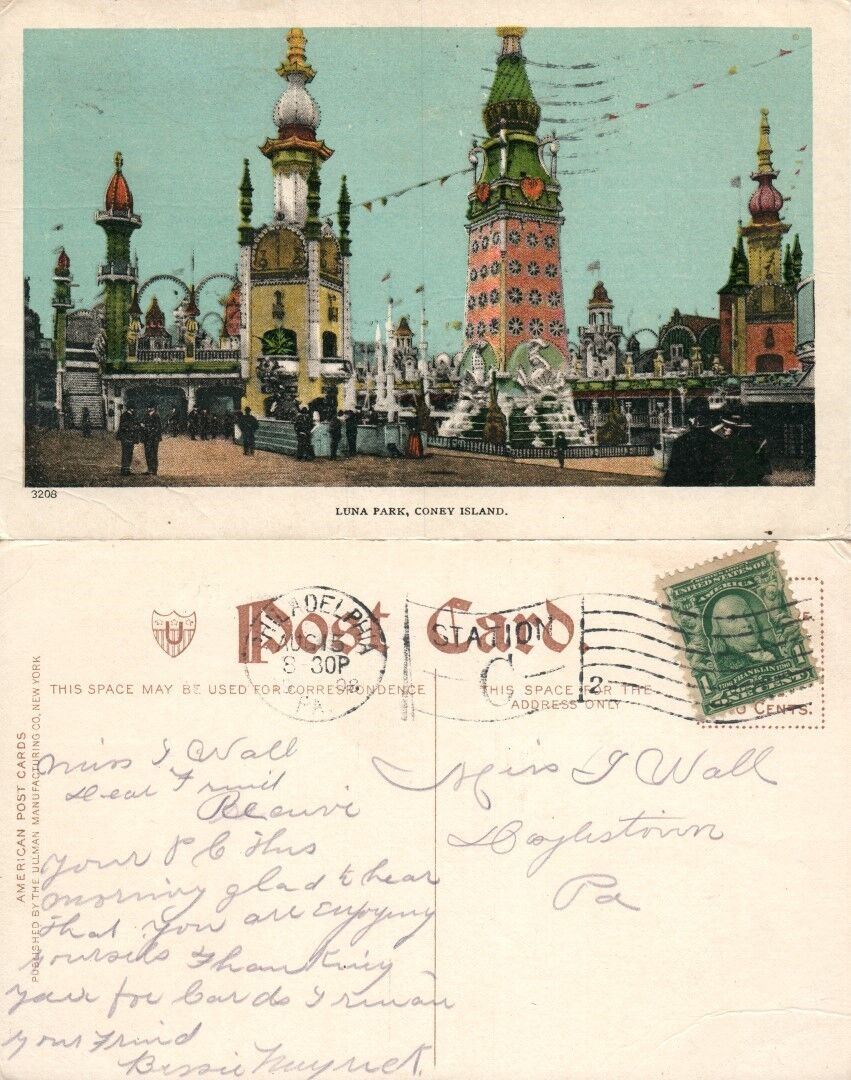 3208
LUNA PARK, CONEY ISLAND.
U
Post Card.
PHILADELPHIA
AUG 15
8 30P
PA.
STATION
C
2
UNITED STATES OF
AMERICA
1706 FRANKLIN 1790
1
1
ONE CENT
CENTS.
THIS SPACE MAY BE USED FOR CORRESPONDENCE
THIS SPACE FOR THE
ADDRESS ONLY
AMERICAN POST CARDS
PUBLISHED BY THE ULLMAN MANUFACTURING CO., NEW YORK
Miss I Wall
Dear Frind
Receive
Your P C this
morning glad to hear
that you are enjoying
yourselfs Thanking
you for Cards I remain
your Frind
Bessie Meyrick.
Miss I Wall
Doylestown
Pa